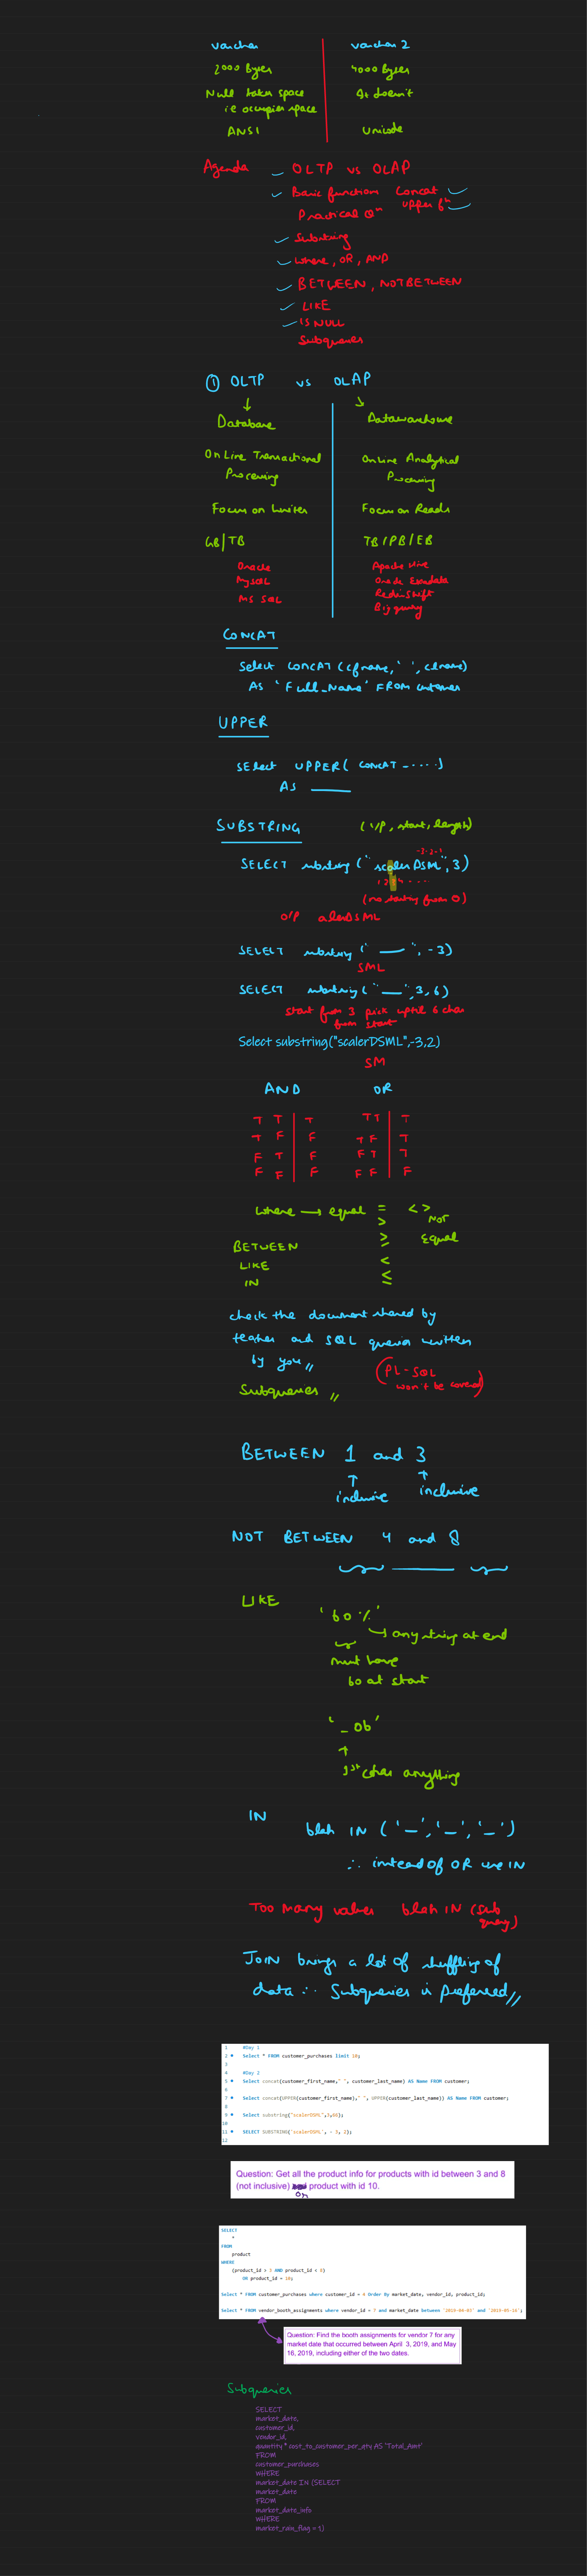 varchar varchar 2
2000 Bytes 4000 Bytes
Null takes space It doesn't
i.e occupies space
ANSI Unicode
Agenda - OLTP vs OLAP
Basic functions Concat
Practical Qn Upper fn
Substring
Where, OR, AND
BETWEEN, NOT BETWEEN
LIKE
IS NULL
Subqueries
① OLTP vs OLAP
Database Datawarehouse
OnLine Transactional OnLine Analytical
Processing Processing
Focus on Writes Focus on Reads
GB/TB TB/PB/EB
Oracle Apache Hive
MySQL Oracle Exadata
MS SQL Redshift
Big query
CONCAT
Select CONCAT (cfname,' ', clname)
As 'Full_Name' FROM customer
UPPER
SElect UPPER( CONCAT - ....)
AS ___
SUBSTRING (i/p, start, length)
-3-2-1
SELECT substring ("scalerDSML", 3)
1 2 3 4 ....
(no starting from 0)
O/P alerDSML
SELECT substring (" — ", -3)
SML
SELECT substring (" — ", 3, 6)
start from 3 pick uptil 6 char
from start
Select substring("scalerDSML",-3,2)
SM
AND OR
T T T T T T
T F F T F T
F T F F T T
F F F F F F
Where → equal = < >
> NOT
≥ Equal
BETWEEN
LIKE <
IN ≤
check the document shared by
teacher and SQL queries written
by you //
(PL-SQL
won't be covered)
Subqueries //
BETWEEN 1 and 3
inclusive inclusive
NOT BETWEEN 4 and 8
LIKE
'bo%'
any string at end
must have
bo at start
'_ob'
1st char anything
IN blah IN ('_', '_', '_')
∴ instead of OR use IN
Too Many values blah IN (sub
query)
JOIN brings a lot of shuffling of
data ∴ Subqueries is preferred //
1 #Day 1
2 Select * FROM customer_purchases limit 10;
3
4 #Day 2
5 Select concat(customer_first_name," ", customer_last_name) AS Name FROM customer;
6
7 Select concat(UPPER(customer_first_name)," ", UPPER(customer_last_name)) AS Name FROM customer;
8
9 Select substring("scalerDSML",3,46);
10
11 SELECT SUBSTRING('scalerDSML', - 3, 2);
12
Question: Get all the product info for products with id between 3 and 8
(not inclusive) product with id 10.
or
SELECT
*
FROM
product
WHERE
(product_id > 3 AND product_id < 8)
OR product_id = 10;
Select * FROM customer_purchases where customer_id = 4 Order By market_date, vendor_id, product_id;
Select * FROM vendor_booth_assignments where vendor_id = 7 and market_date between '2019-04-03' and '2019-05-16';
Question: Find the booth assignments for vendor 7 for any
market date that occurred between April 3, 2019, and May
16, 2019, including either of the two dates.
Subqueries
SELECT
market_date,
customer_id,
vendor_id,
quantity * cost_to_customer_per_qty AS 'Total_Amt'
FROM
customer_purchases
WHERE
market_date IN (SELECT
market_date
FROM
market_date_info
WHERE
market_rain_flag = 1)